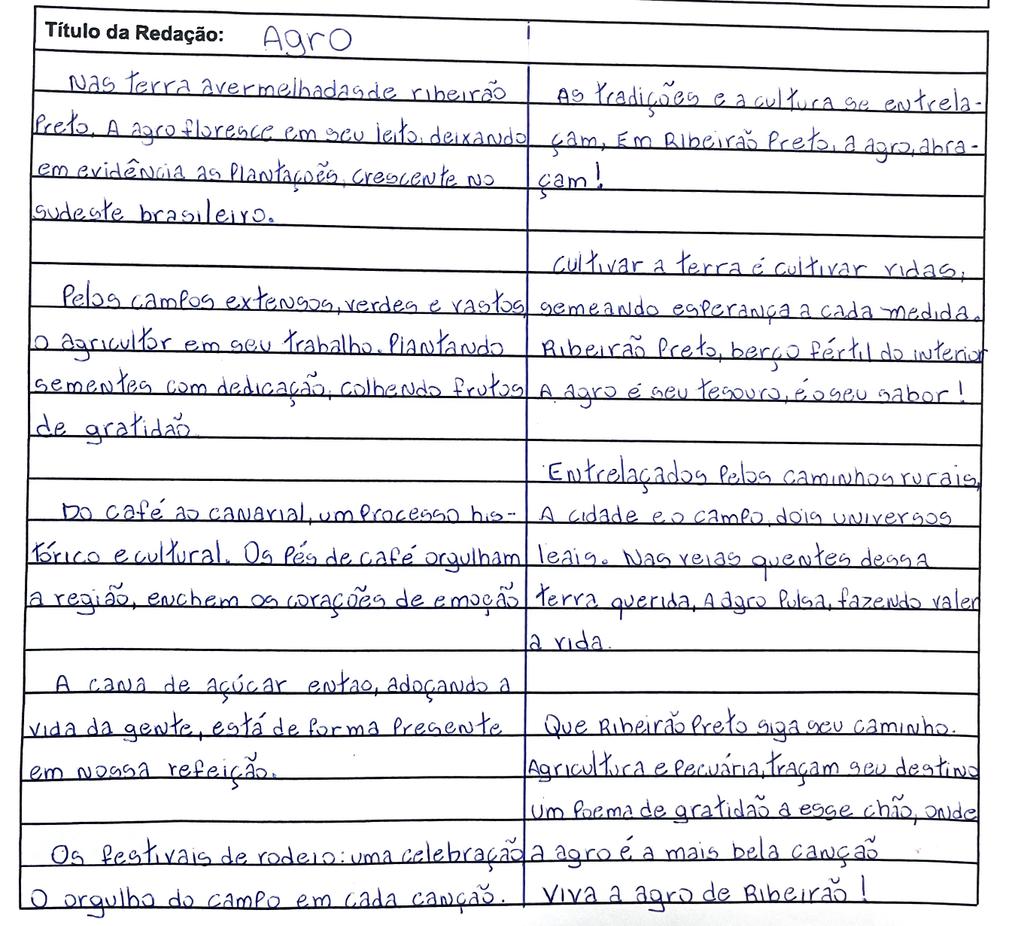 Título da Redação: Agro
Nas terra avermelhadas de ribeirão
Preto, A agro floresce em seu leito, deixando
em evidência as Plantações, crescente no
sudeste brasileiro.
Pelos campos extensos, verdes e vastos,
o agricultor em seu trabalho. Plantando
sementes com dedicação, colhendo frutos
de gratidão.
Do café ao canarial, um processo his-
tórico e cultural. Os Pés de café orgulham
a região, enchem os corações de emoção
A cana de açúcar entao, adoçando a
vida da gente, está de forma Presente
em nossa refeição.
Os festivais de rodeio: uma celebração
O orgulho do campo em cada canção.
As tradições e a cultura se entrela-
çam, Em Ribeirão Preto, a agro, abra-
çam!
Cultivar a terra é cultivar vidas,
semeando esperança a cada medida.
Ribeirão Preto, berço fértil do interior
A agro é seu tesouro, é o seu sabor!
Entrelaçados Pelos caminhos rurais,
A cidade e o campo, dois universos
leais. Nas veias quentes dessa
terra querida, A agro Pulsa, fazendo valer
a vida.
Que Ribeirão Preto siga seu caminho.
Agricultura e Pecuária, traçam seu destino
um Poema de gratidão a esse chão, onde
a agro é a mais bela canção
Viva a agro de Ribeirão!